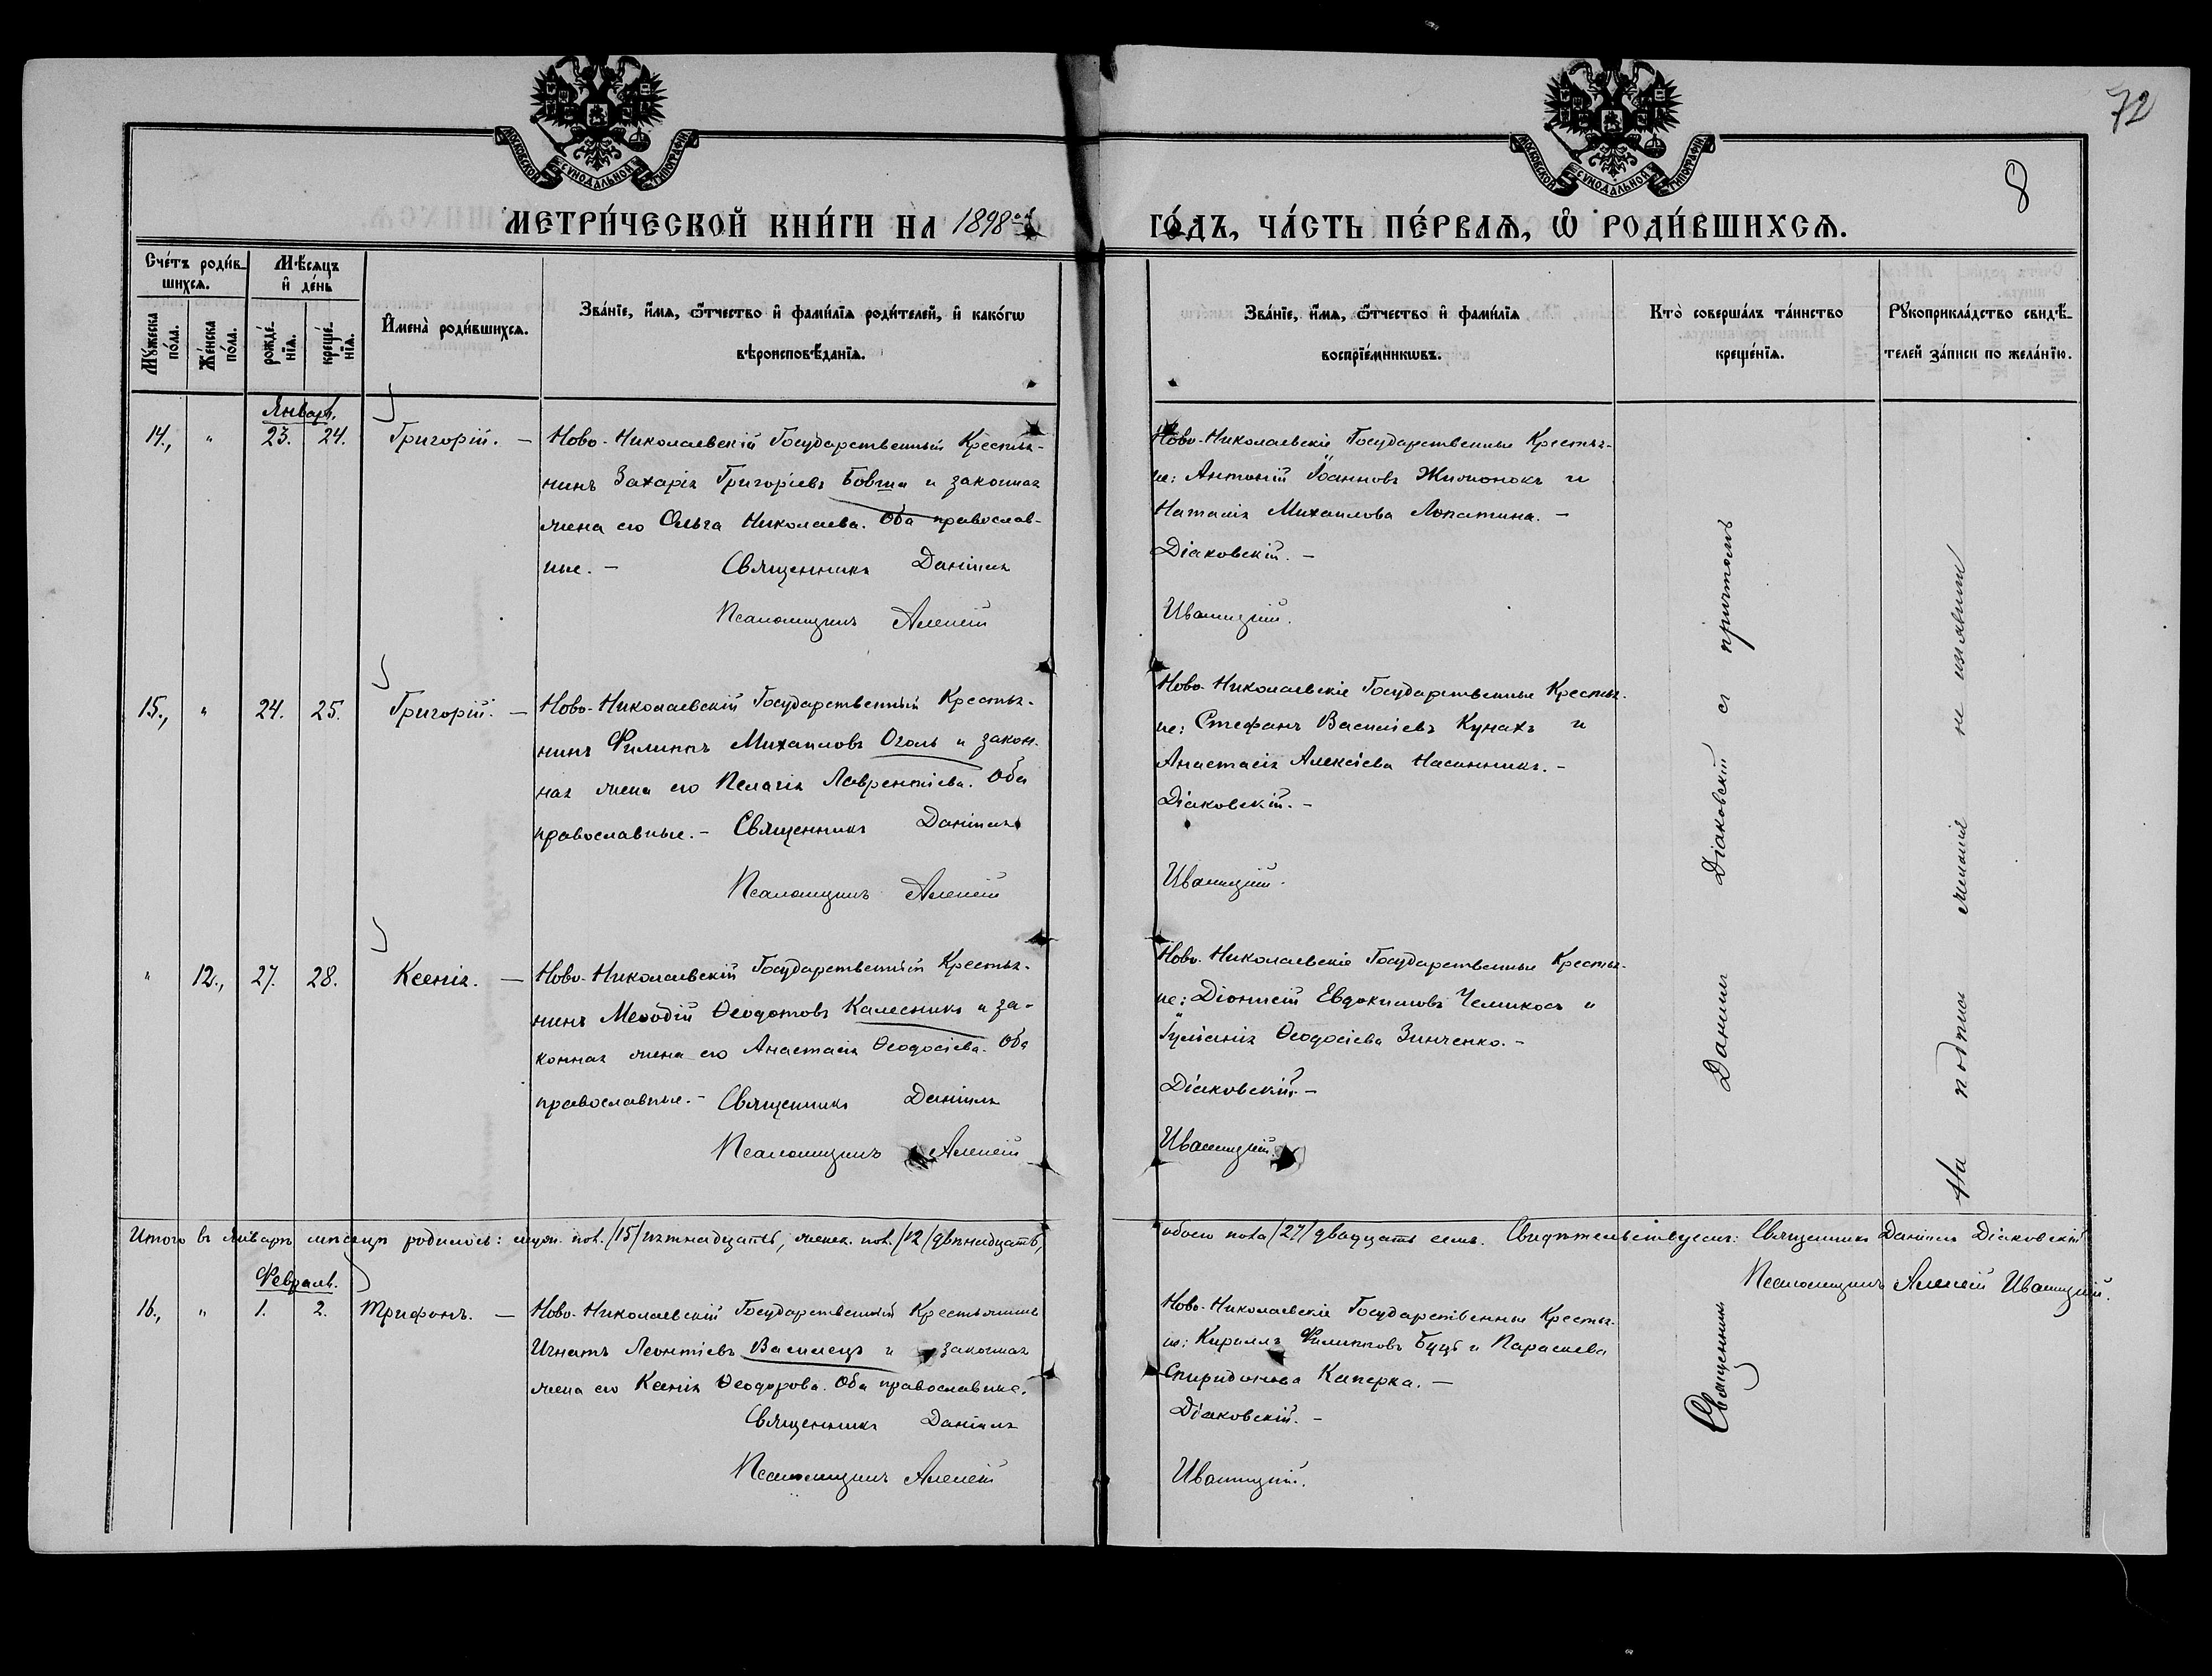 72
8
МОСКОВСКОЙ СУНОДАЛЬНОЙ ТИПОГРАФІИ
МОСКОВСКОЙ СУНОДАЛЬНОЙ ТИПОГРАФІИ
МЕТРИ́ЧЕСКОЙ КНИ́ГИ НА 1898 ГО́ДЪ, ЧА́СТЬ ПЕ́РВАѦ, Ѡ҆ РОДИ́ВШИХСѦ.
Сче́тъ роди́в-
шихсѧ.
Мѣ́сѧцъ
и҆ де́нь
Мꙋ́жеска
по́ла.
Же́нска
по́ла.
рожде́-
нїѧ.
креще́-
нїѧ.
И҆мена̀ роди́вшихсѧ.
Зва́нїе, и҆́мѧ, ѻ҆́тчество и҆ фами́лїѧ роди́телей, и҆ како́гѡ
вѣроисповѣ́данїѧ.
Зва́нїе, и҆́мѧ, ѻ҆́тчество и҆ фами́лїѧ
воспрїе́мникѡвъ.
Кто̀ соверша́лъ та́инство
креще́нїѧ.
Рꙋкоприкла́дство свидѣ́-
телей за́писи по жела́нїю.
Январь.
14., " 23. 24. Григорій. —
Ново-Николаевскій Государственный Крестья-
нинъ Захарія Григоріевъ Бовша и законная
жена его Ольга Николаева. Оба православ-
ные. — Священникъ Даніилъ
Псаломщикъ Алексій
Ново-Николаевскіе Государственные Крестья-
не: Антоній Іоанновъ Жилионокъ и
Наталія Михаилова Лопатина. —
Діаковскій. —
Иваницкій.
15., " 24. 25. Григорій. —
Ново-Николаевскій Государственный Крестья-
нинъ Филиппъ Михаиловъ Оголь и закон-
ная жена его Пелагія Лаврентіева. Оба
православные. — Священникъ Даніилъ
Псаломщикъ Алексій
Ново-Николаевскіе Государственные Крестья-
не: Стефанъ Василіевъ Кунахъ и
Анастасія Алексіева Насинникъ. —
Діаковскій. —
Иваницкій.
" 12., 27. 28. Ксенія. —
Ново-Николаевскій Государственный Крестья-
нинъ Меѳодій Ѳеодотовъ Калесникъ и за-
конная жена его Анастасія Ѳеодосіева. Оба
православные. — Священникъ Даніилъ
Псаломщикъ Алексій
Ново-Николаевскіе Государственные Крестья-
не: Діонисій Евдокимовъ Челикосъ и
Іуліанія Ѳеодосіева Зинченко. —
Діаковскій. —
Иваницкій.
Итого въ Январѣ мѣсяцѣ родилось: муж. пол. /15/ пятнадцать, женск. пол. /12/ двѣнадцать, обоего пола /27/ двадцать семь. Свидѣтельствуемъ: Священникъ Даніилъ Діаковскій
Псаломщикъ Алексій Иваницкій.
Февраль.
16., " 1. 2. Трифонъ. —
Ново-Николаевскій Государственный Крестьянинъ
Игнатъ Леонтіевъ Василецъ и законная
жена его Ксенія Ѳеодорова. Оба православные.
Священникъ Даніилъ
Псаломщикъ Алексій
Ново-Николаевскіе Государственные Крестья-
не: Кириллъ Филипповъ Буцъ и Параскева
Спиридонова Каперка. —
Діаковскій. —
Иваницкій.
Священникъ Даніилъ Діаковскій съ причтомъ
На подписи желанія не изъявили